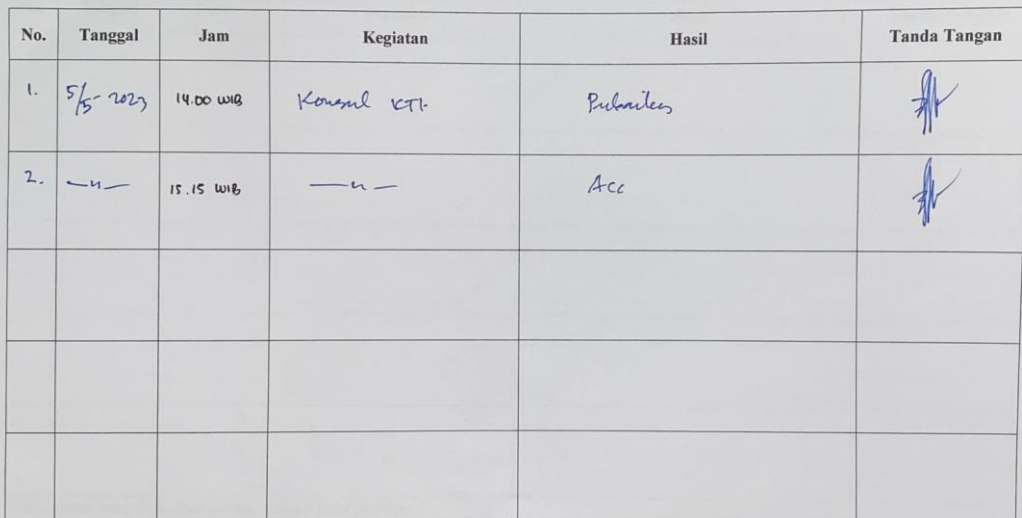 No. Tanggal Jam Kegiatan Hasil Tanda Tangan
1. 5/5-2023 14.00 WIB Konsul KTI
2. —"— 15.15 WIB —"— Acc